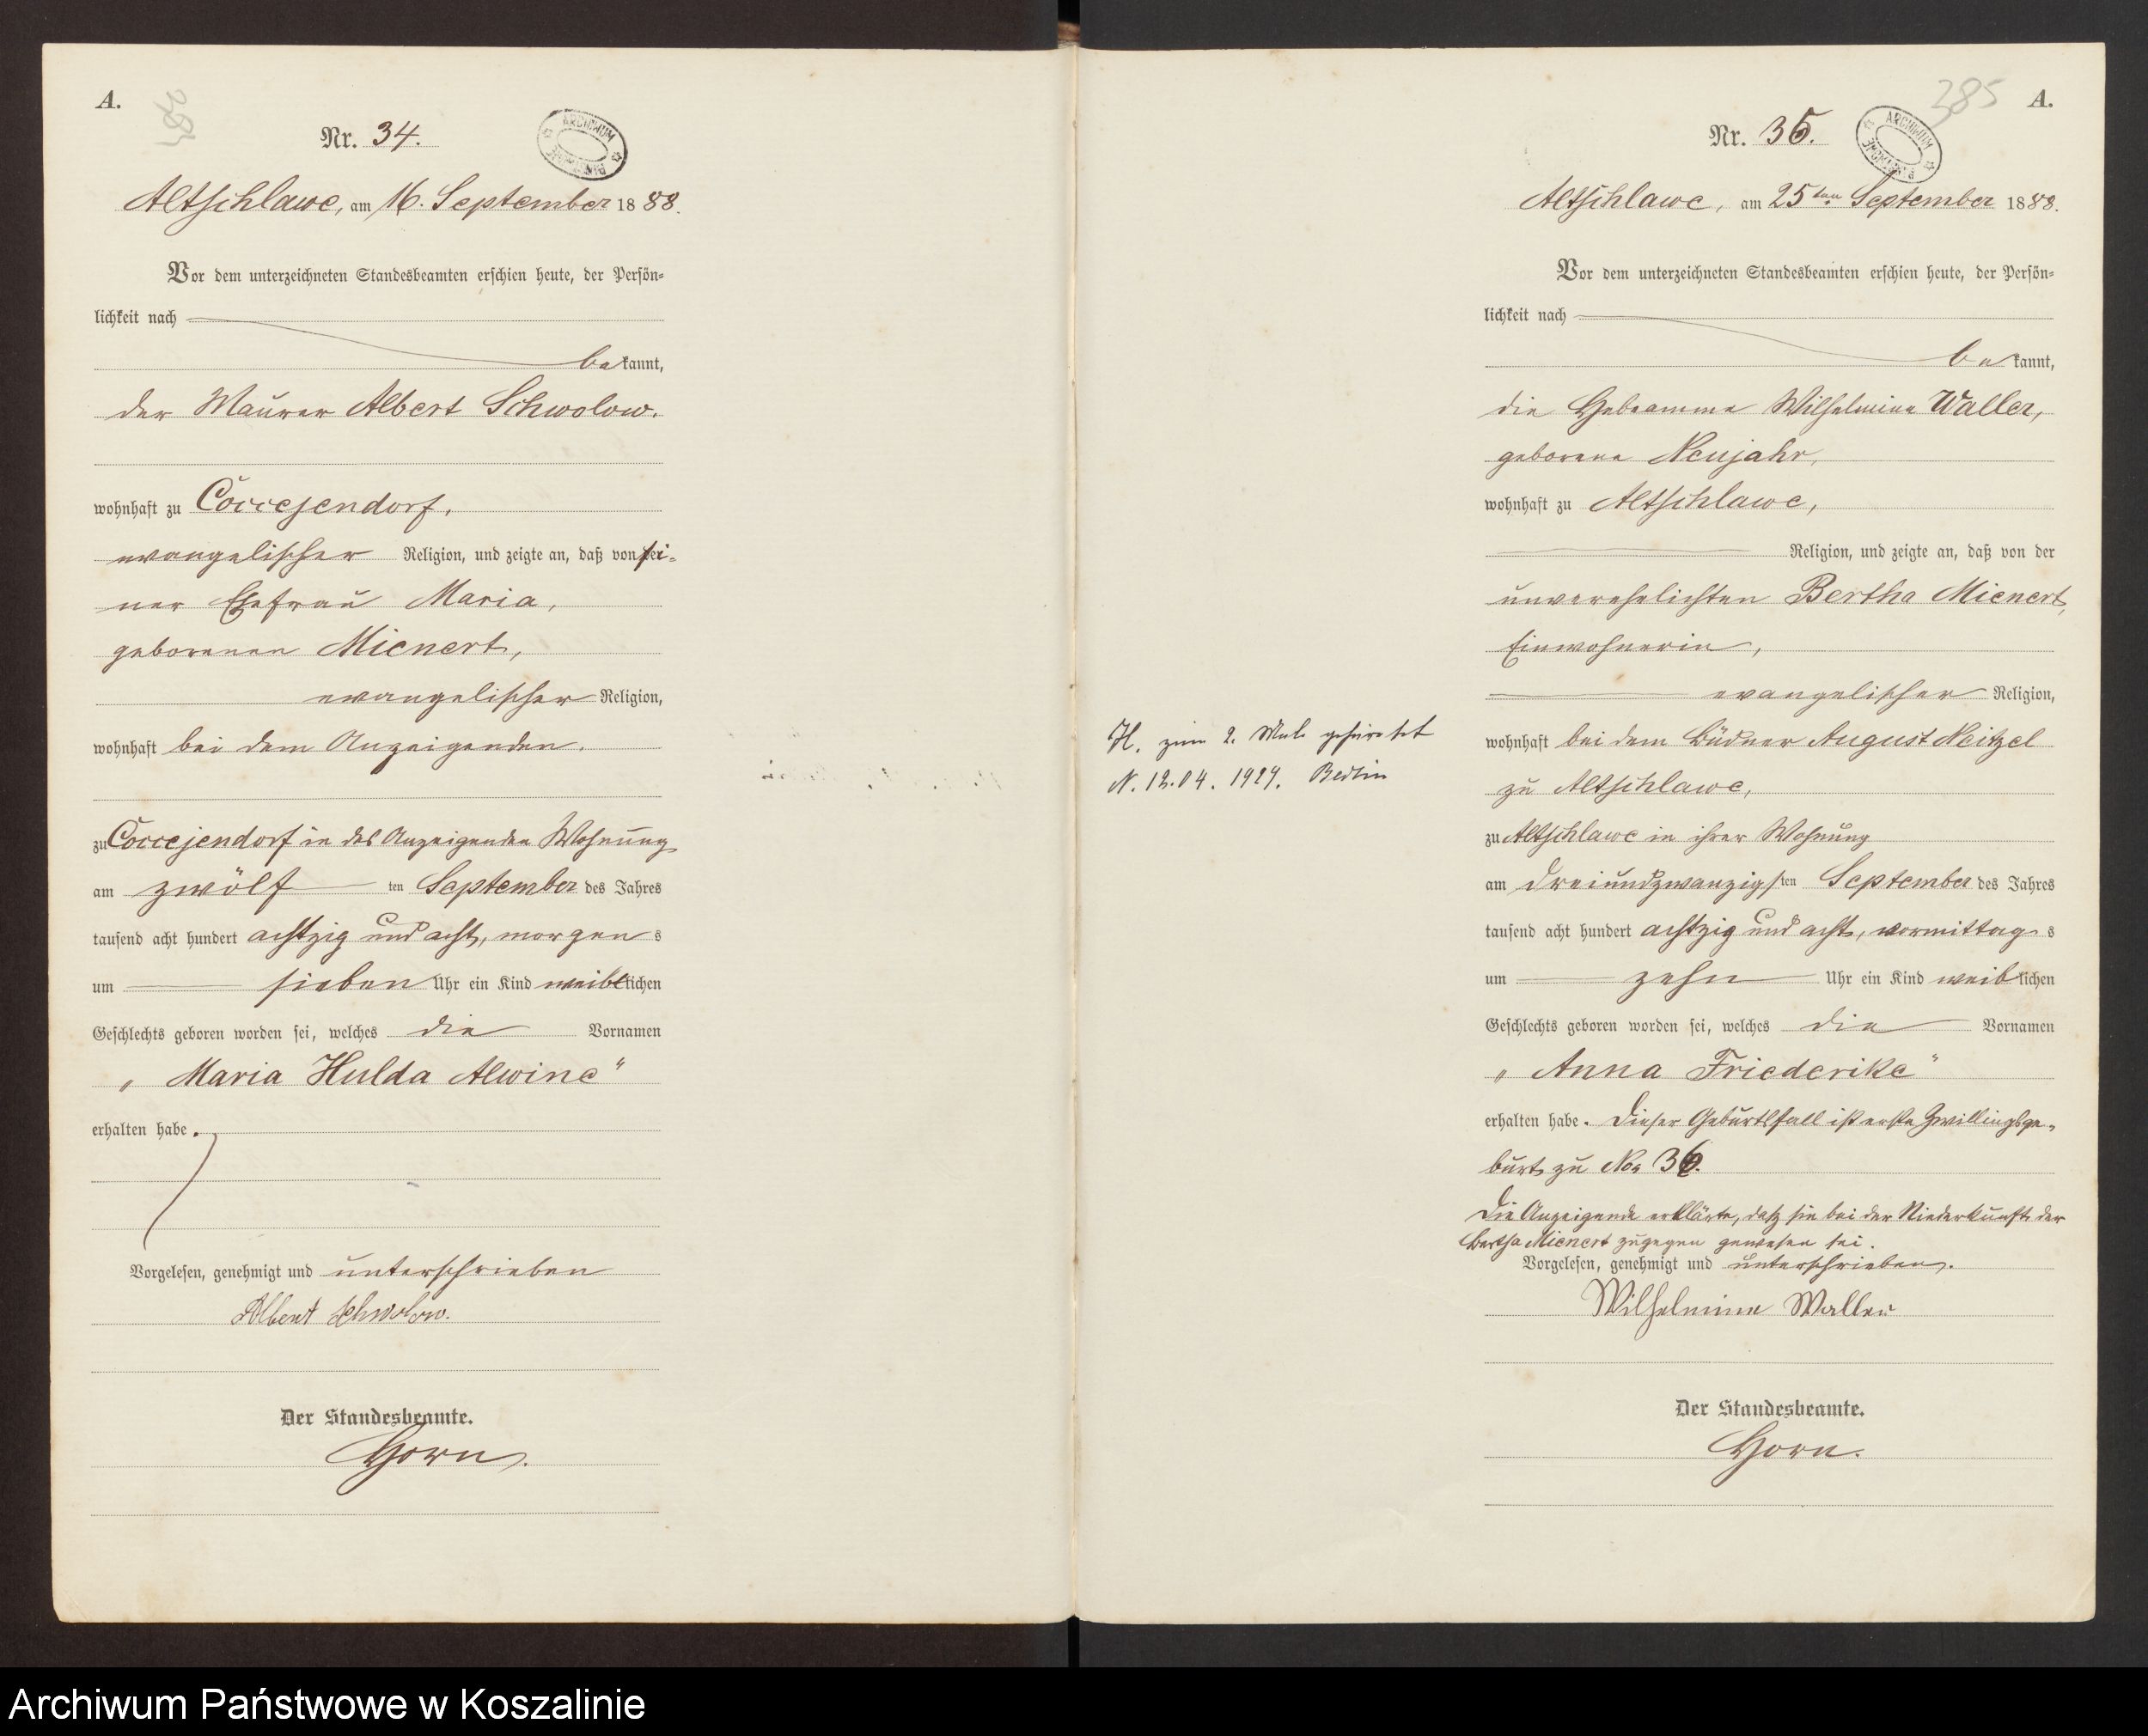 A.
Nr. 34.
ARCHIWUM PAŃSTWOWE
Altschlawe, am 16. September 1888.
Vor dem unterzeichneten Standesbeamten erschien heute, der Persön-
lichkeit nach
bekannt,
der Maurer Albert Schwolow.
wohnhaft zu Coccejendorf,
evangelischer Religion, und zeigte an, daß von sei-
ner Ehefrau Maria,
geborenen Mienert,
evangelischer Religion,
wohnhaft bei dem Anzeigenden.
zu Coccejendorf in des Anzeigenden Wohnung
am zwölf ten September des Jahres
tausend acht hundert achtzig und acht, morgens
um sieben Uhr ein Kind weiblichen
Geschlechts geboren worden sei, welches die Vornamen
„Maria Hulda Alwine“
erhalten habe.
Vorgelesen, genehmigt und unterschrieben
Albert Schwolow.
Der Standesbeamte.
Horn.
H. zum 2. Male geheiratet
N. 12.04. 1924. Berlin
385
A.
Nr. 35.
ARCHIWUM PAŃSTWOWE
Altschlawe, am 25ten September 1888.
Vor dem unterzeichneten Standesbeamten erschien heute, der Persön-
lichkeit nach
bekannt,
die Hebeamme Wilhelmine Waller,
geborene Neujahr,
wohnhaft zu Altschlawe,
Religion, und zeigte an, daß von der
unverehelichten Bertha Mienert,
Einwohnerin,
evangelischer Religion,
wohnhaft bei dem Büdner August Neitzel
zu Altschlawe,
zu Altschlawe in ihrer Wohnung
am dreiundzwanzigsten September des Jahres
tausend acht hundert achtzig und acht, vormittags
um zehn Uhr ein Kind weiblichen
Geschlechts geboren worden sei, welches die Vornamen
„Anna Friederike“
erhalten habe. Dieser Geburtsfall ist erste Zwillingsge-
burt zu No. 36.
Die Anzeigende erklärte, daß sie bei der Niederkunft der
Bertha Mienert zugegen gewesen sei.
Vorgelesen, genehmigt und unterschrieben.
Wilhelmine Waller
Der Standesbeamte.
Horn.
Archiwum Państwowe w Koszalinie